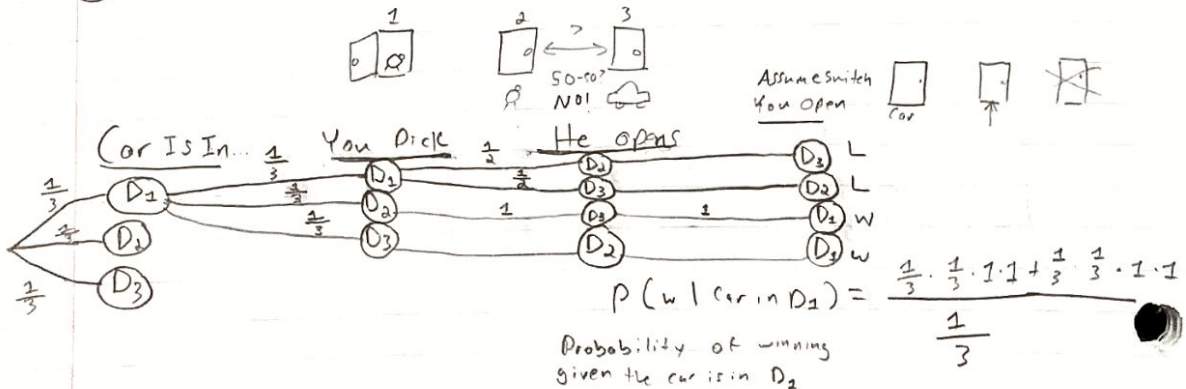 1 2 ? 3
50-50?
NO!
Assume switch
You Open
Car
Car Is In... You Pick He opens
1/3 D1 1/3 D1 1/2 D2 D3 L
1/2 D3 D2 L
1/3 D2 1/3 D2 1 D3 1 D1 W
1/3 D3 1/3 D3 D2 D1 W
P(w | Car in D1) = (1/3 · 1/3 · 1 · 1 + 1/3 · 1/3 · 1 · 1) / (1/3)
Probability of winning
given the car is in D1